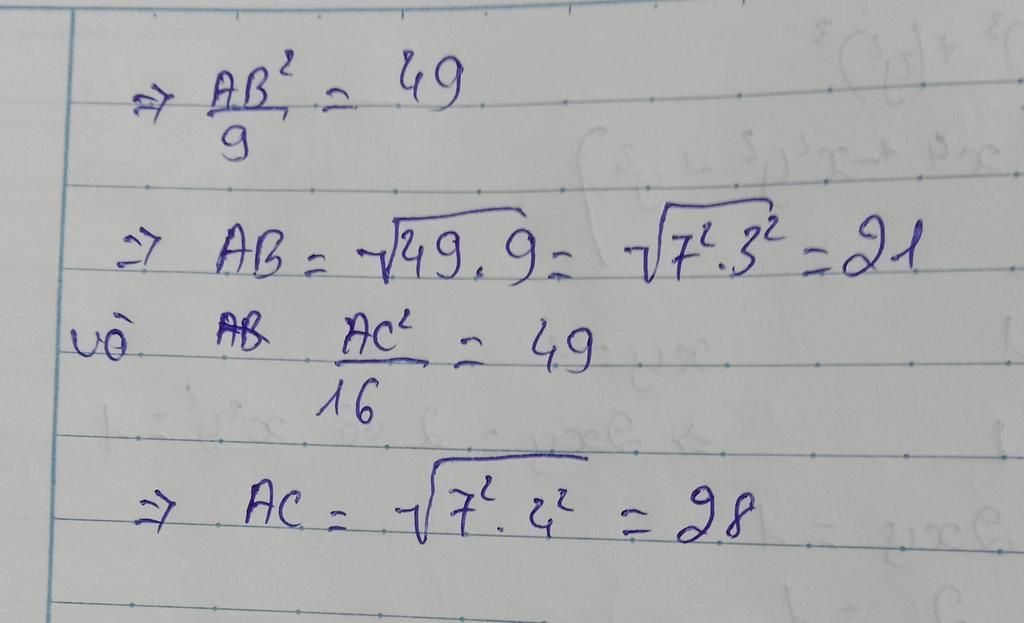 => AB²/9 = 49
=> AB = √(49.9) = √(7².3²) = 21
và AC²/16 = 49
=> AC = √(7².4²) = 28